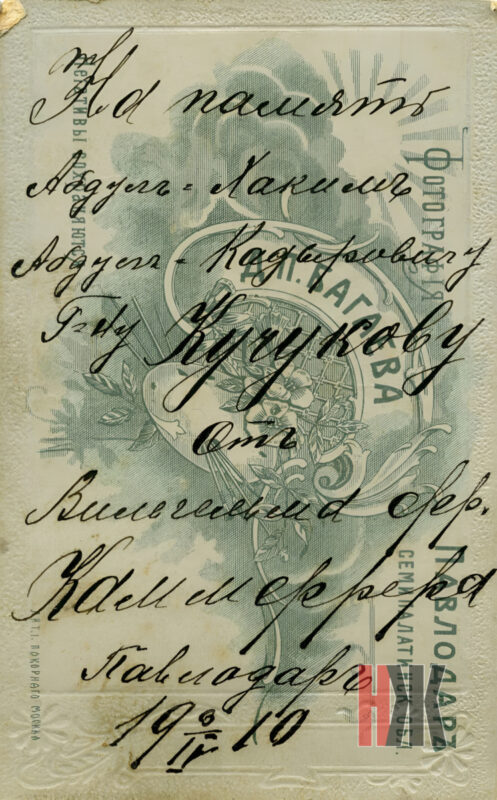 На память
Абдулъ-Хакимъ
Абдулъ-Кадыровичу
Г-ну Кучукову
отъ
Вильгельма фр.
Каммерера
Павлодаръ
19 8/IV 10
Фотографія
Д.П. Багаева
Павлодаръ
Семипалатинск. обл.
Негативы сохраняются
Лит. I. Покорнаго Москва
НК